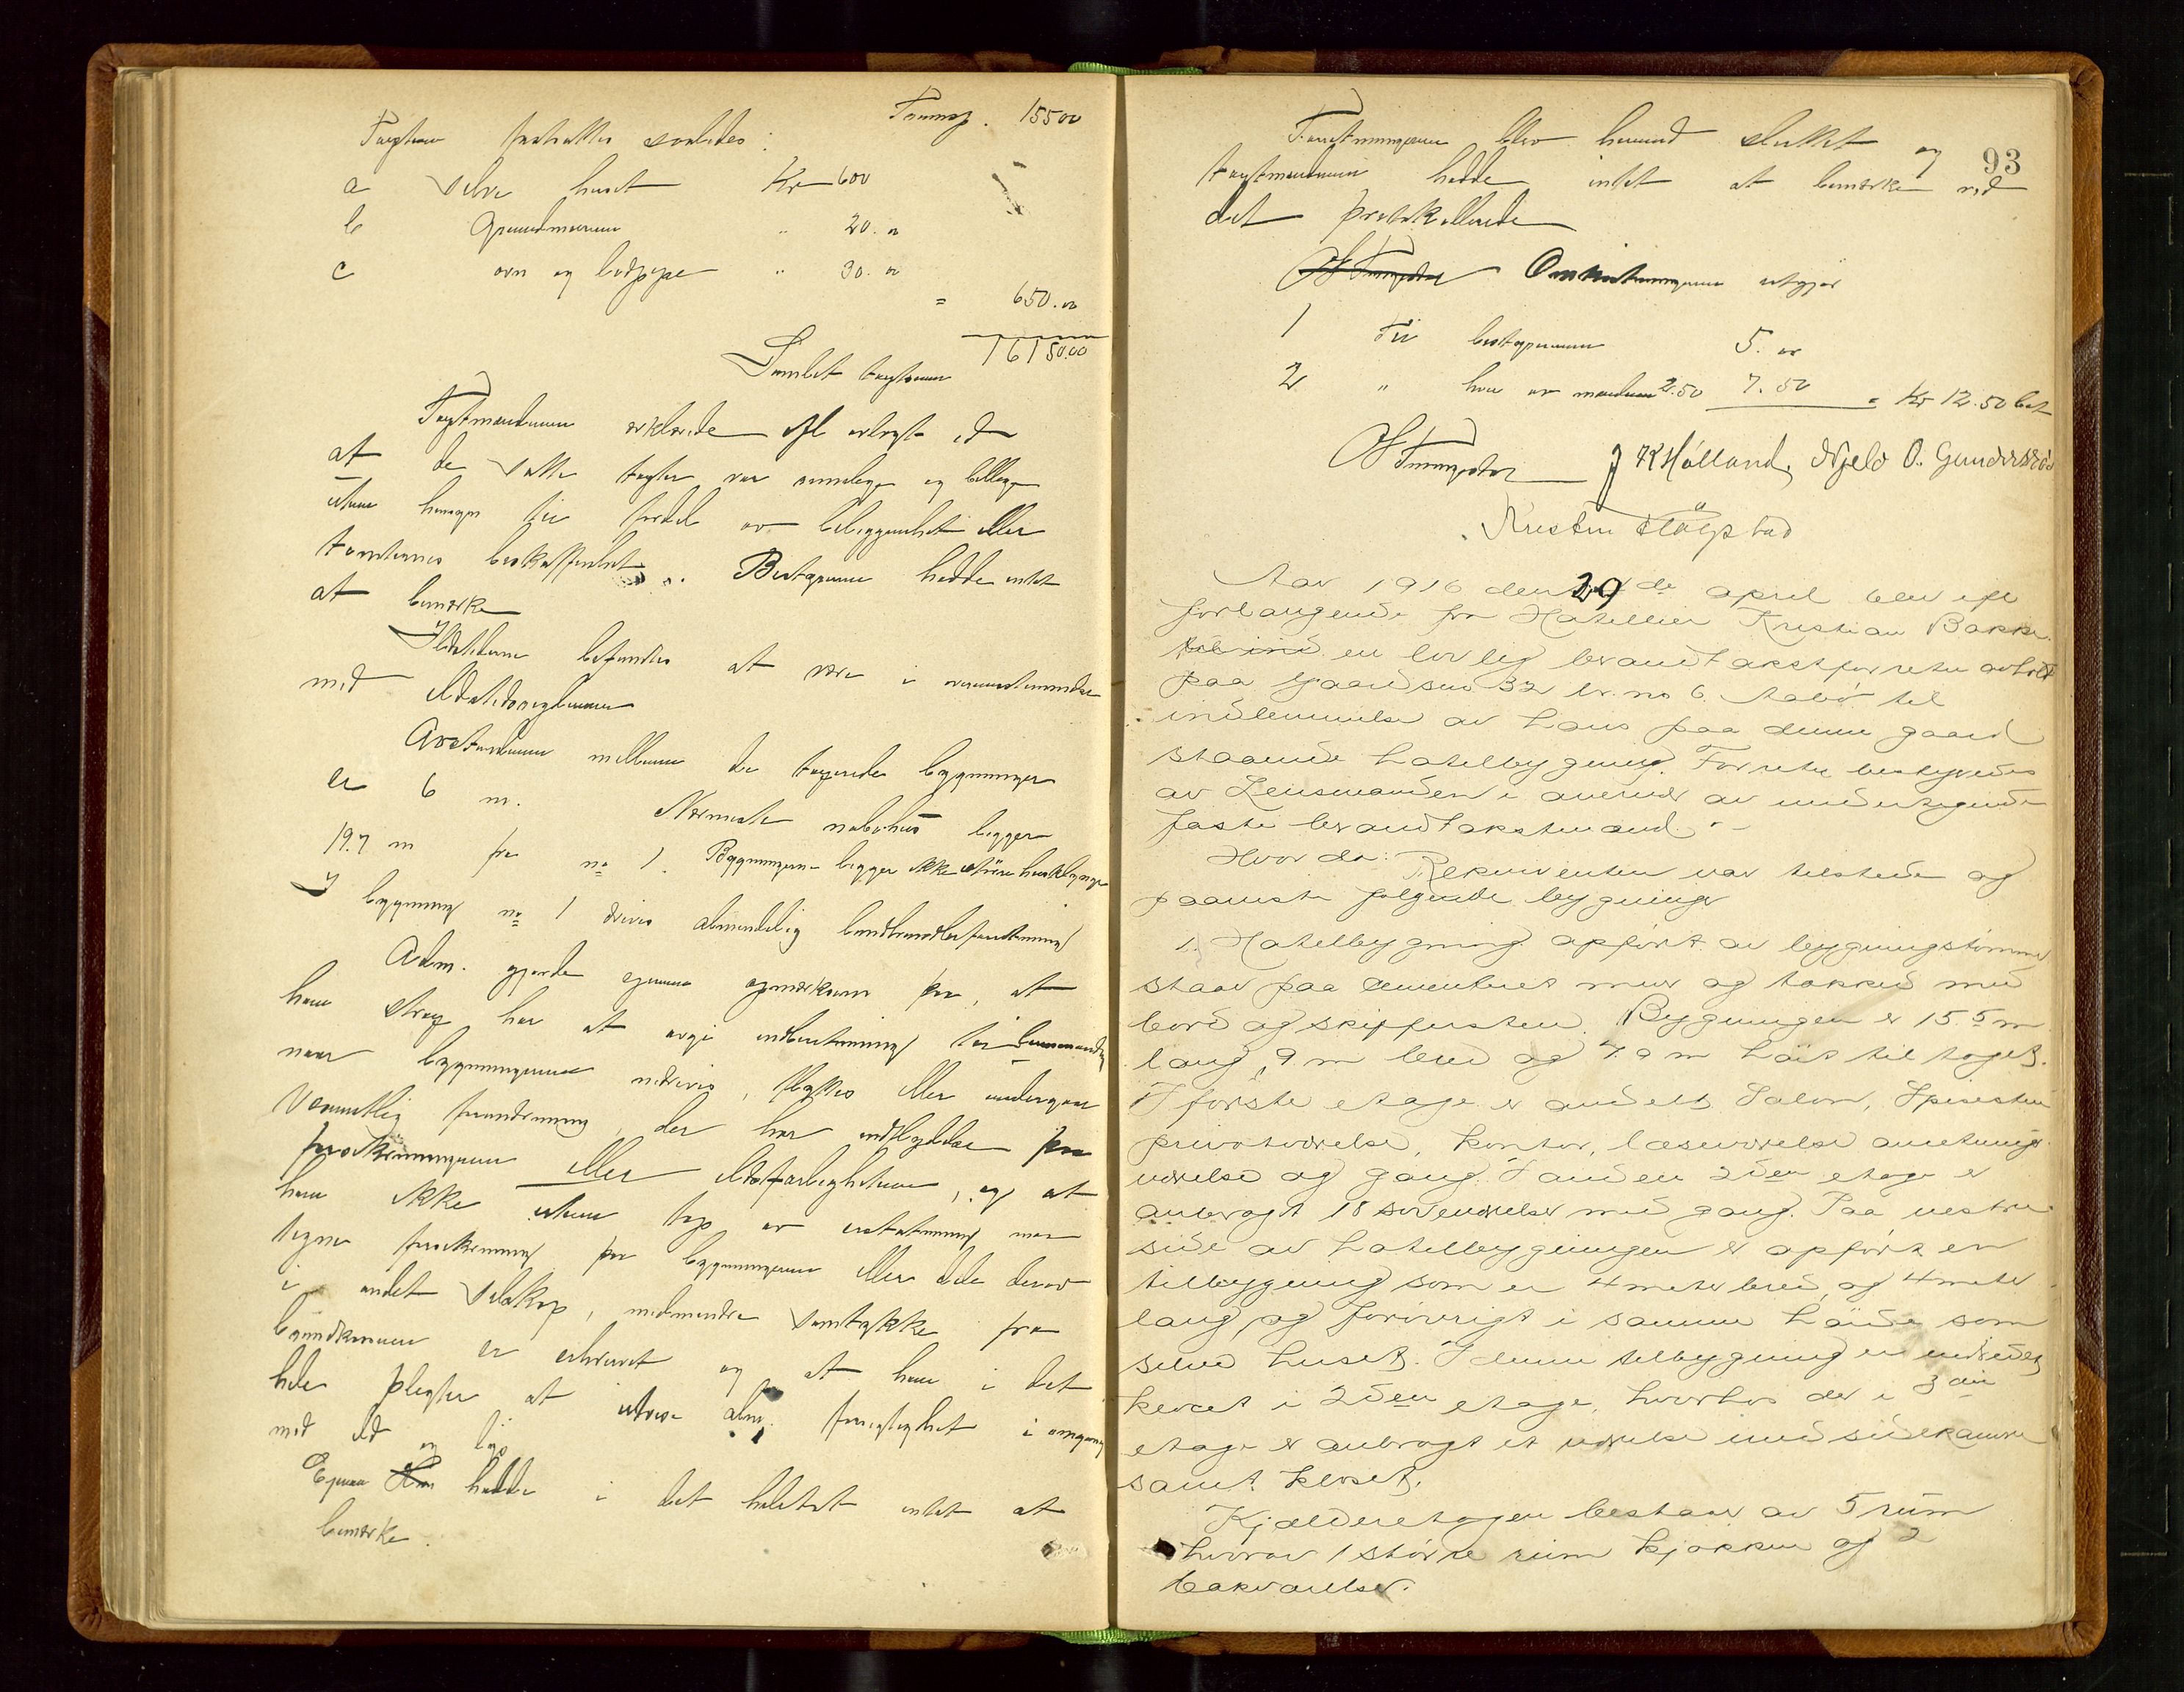 Transp. 15500
Taxten fastsattes saaledes:
a selve huset Kr 600
b Grundmuren " 20.00
c ovn og   " 30.00
= 650.00
Samlet taxtsum 16150.00
Taxtmændene erklærede efl avlagt ed
at de satte taxter var rimelige og billige
uten hensyn til fordel av beliggenhet eller
tomternes beskaffenhet. Bestyreren hadde intet
at bemerke
Ildstederne befandtes at være i overensstemmelse
med
Avstanden mellem de taxerede bygninger
er 6 m. Nærmeste nabohus ligger
19.7 m fra no 1. Bygningerne ligger ikke i større husklynge
I bygning no 1 drives almindelig landhandlerforretning
Adm. gjorde eieren opmerksom paa, at
han strax har at avgi indberetning til lensmanden
naar bygningerne nedrives, flyttes eller undergaar
væsentlig forandring, der har indflydelse paa
forsikringssummen eller ildsfarligheten, og at
han ikke uten tap av erstatning maa
tegne forsikring paa bygningerne eller dele derav
i andet selskap, medmindre samtykke fra
brandkassen er erhvervet og at han i det
hele pligter at utvise alm. forsigtighet i omgang
med ild og lys
Eieren hadde i det hele tat intet at
bemerke.
93
Forretningen blev hermed sluttet og
taxtmændene hadde intet at bemerke ved
det protokollerede
Omkostningerne utgjør
1 Til bestyreren 5.00
2 " hver av mændene 2.50 7.50 = Kr 12.50 bet
J K Hølland, Njeld O. Gundersrød
Kristen
Aar 1916 den 29de april blev efl
forlangende fra Hotelleier Kristian Bakke
en lovlig brandtakstforretn avholdt
paa gaardsno 32 br. no 6. til
indlemmelse av hans paa denne gaard
staaende hotelbygning. Forretn bestyredes
av Lensmanden i nærvær av undertegnede
faste brandtakstmænd. -
Hvor da: Rekvirenten var tilstede og
paaviste følgende bygninger
1. Hotelbygning opført av bygningstømmer
staar paa cementeret mur og takket med
bord og skiffersten. Bygningen er 15.5 m
lang, 9 m bred og 7.9 m høit til taget.
I første etage er andels Salon, Spisestue
privatværelse, kontor, læseværelse anretnings
værelse og gang. I anden 2den etage er
anbragt 18 soveværelser med gang. Paa vestre
side av hotelbygningen er opført en
tilbygning som er 4 meter bred og 4 meter
lang, og forøvrigt i samme høide som
selve huset. I denne tilbygning er indredet
kloset i 2den etage, hvorhos der i 3die
etage er anbragt et værelse med sidekammer
samt kloset.
Kjælderetagen bestaar av 5 rum
hvorav 1 større rum kjøkken og 2
bakværelser.